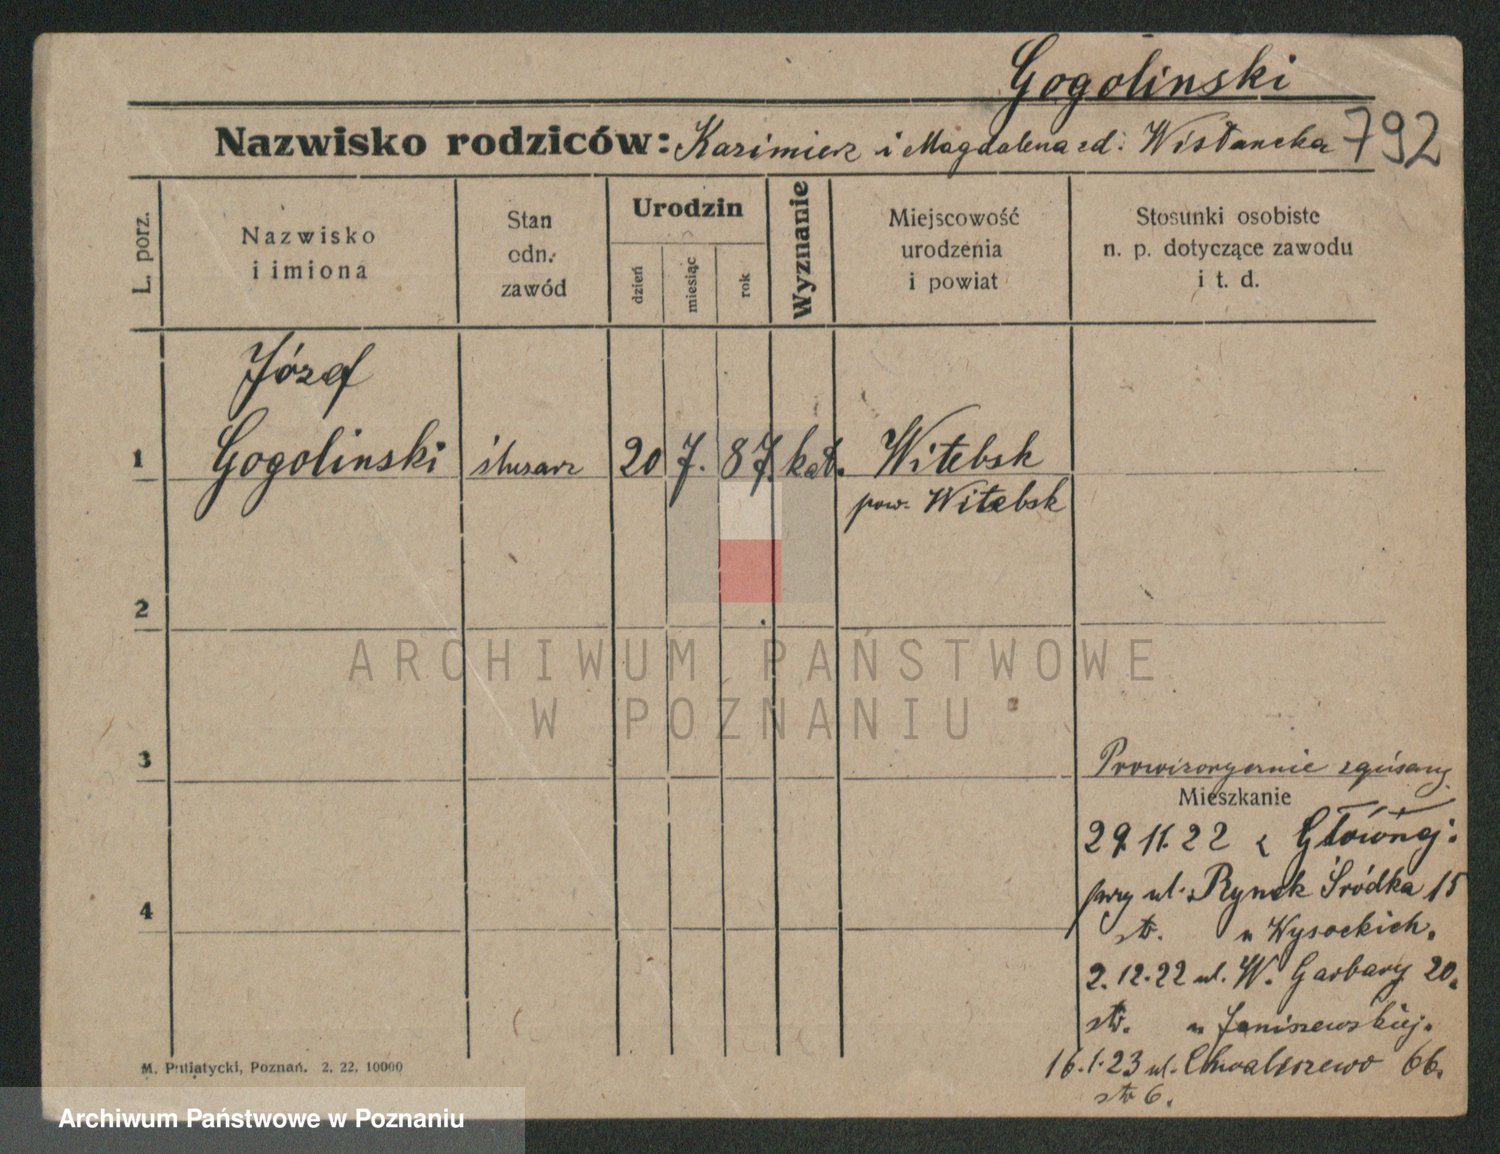 Gogolinski
Nazwisko rodziców: Kazimierz i Magdalena zd: Wisłancka 792
L. porz.
Nazwisko
i imiona
Stan
odn.
zawód
Urodzin
dzień
miesiąc
rok
Wyznanie
Miejscowość
urodzenia
i powiat
Stosunki osobiste
n. p. dotyczące zawodu
i t. d.
Józef
1 Gogolinski ślusarz 20 7. 87. kat. Witebsk
pow. Witebsk
2
ARCHIWUM PAŃSTWOWE
W POZNANIU
3
Prowizorycznie zapisany
Mieszkanie
29.11.22 z Głównej.
przy ul. Rynek Śródka 15
str. u Wysockich.
4
2.12.22 ul. W. Garbary 20.
str. u Janiszewskiej.
16.1.23 ul. Chwaliszewo 66.
str 6.
M. Putiatycki, Poznań. 2. 22. 10000
Archiwum Państwowe w Poznaniu